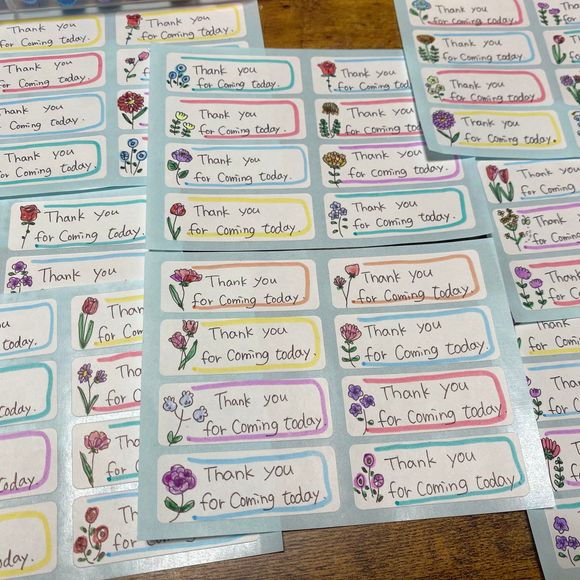 Thank you
for Coming today.
Thank you
for Coming today.
Thank you
for Coming today.
Thank you
for Coming today.
Thank you
for Coming today.
Thank you
for Coming today.
Thank you
for Coming today.
Thank you
for Coming today.
Thank you
for Coming today.
Thank you
for Coming today.
Thank you
for Coming today.
Thank you
for Coming today.
Thank you
for Coming today.
Thank you
for Coming today.
Thank you
for Coming today.
Thank you
for Coming today.
Thank you
for Coming today.
Thank you
for Coming today.
Thank you
Thank you
for Coming today.
Thank you
for Coming today.
Thank you
for Coming today.
Thank you
for Coming today.
Thank you
for Coming today.
Thank you
for Coming today.
Thank you
for Coming today.
Thank you
for Coming today.
Thank
for Coming
Thank
for Coming
Thank
for Coming
you
today.
you
today.
you
today.
you
today.
for
for
for
for Coming today.
Thank you
for Coming
Thank
for
Thank
for